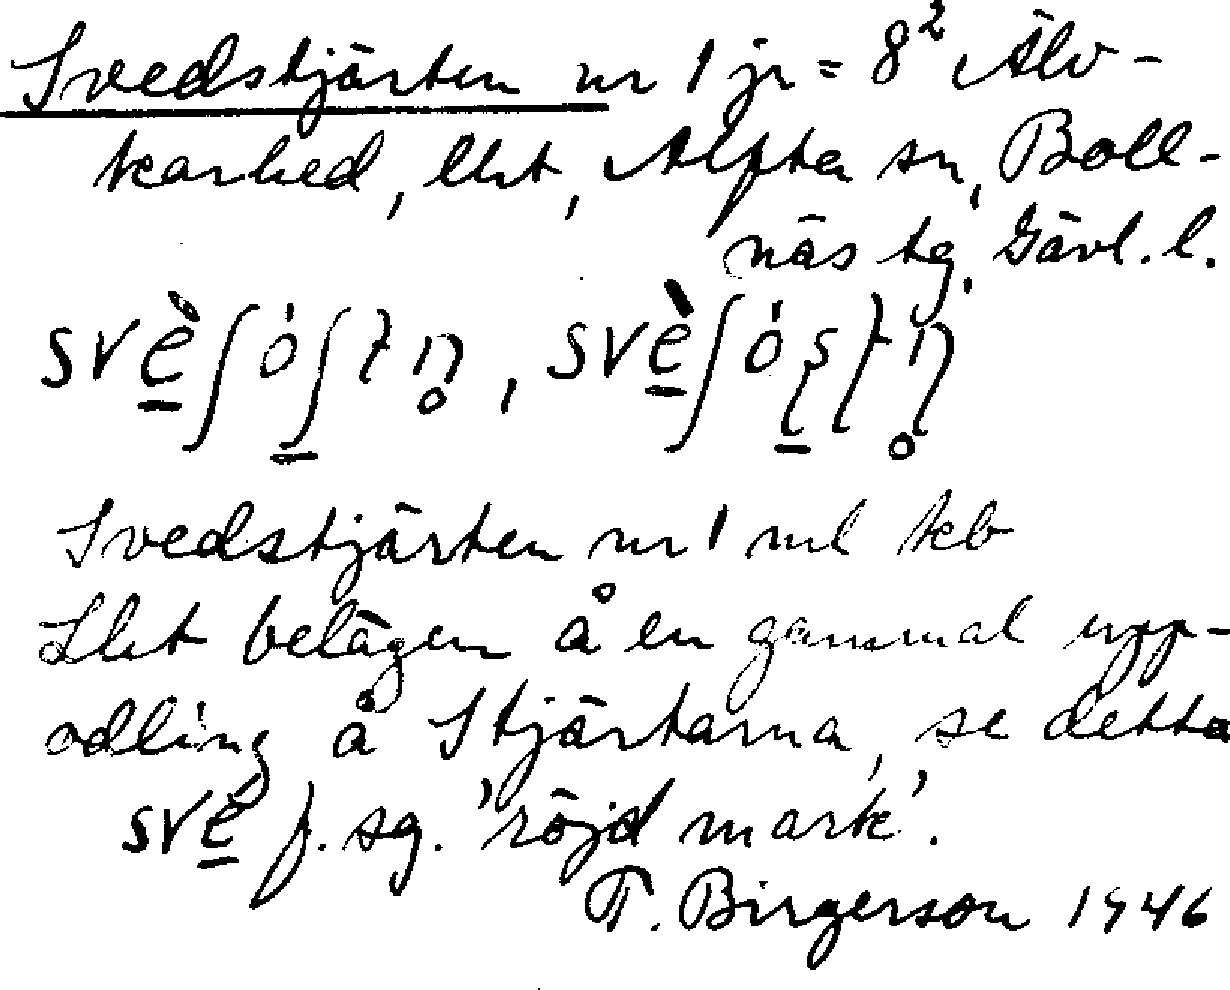 Svedstjärten nr 1 jr = 8² Älv-
karhed, lht, Alfta sn, Boll-
näs tg, Gävl. l.
Svedstjärten nr 1 ml kb
Lht belägen å en gammal upp-
odling å Stjärtarna, se detta
svè̱ f. sg. 'röjd mark'.
T. Birgerson 1946